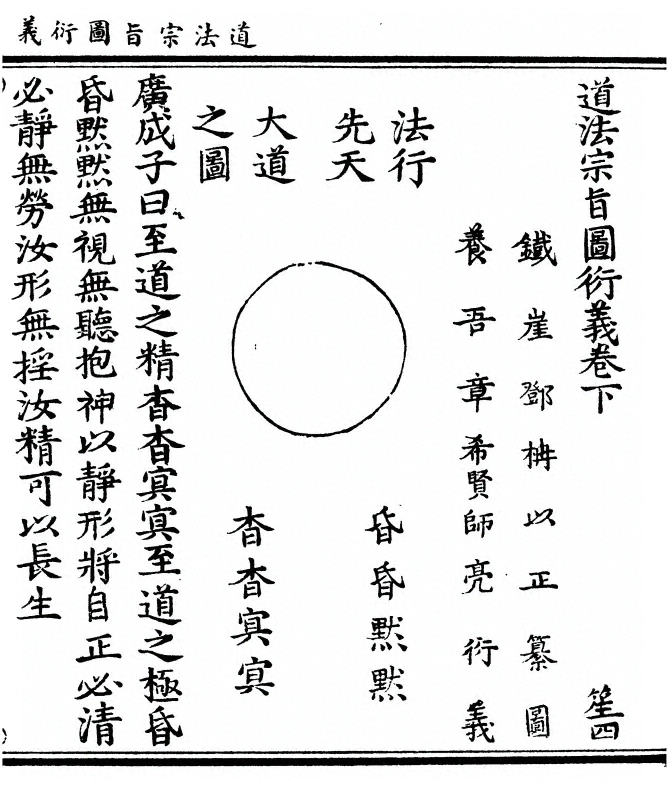 道法宗旨圖衍義
道法宗旨圖衍義卷下 笙四
鐵崖鄧柟以正纂圖
養吾章希賢師亮衍義
法行
先天
大道
之圖
昏昏默默
杳杳冥冥
廣成子曰至道之精杳杳冥冥至道之極昏
昏默默無視無聽抱神以靜形將自正必清
必靜無勞汝形無搖汝精可以長生